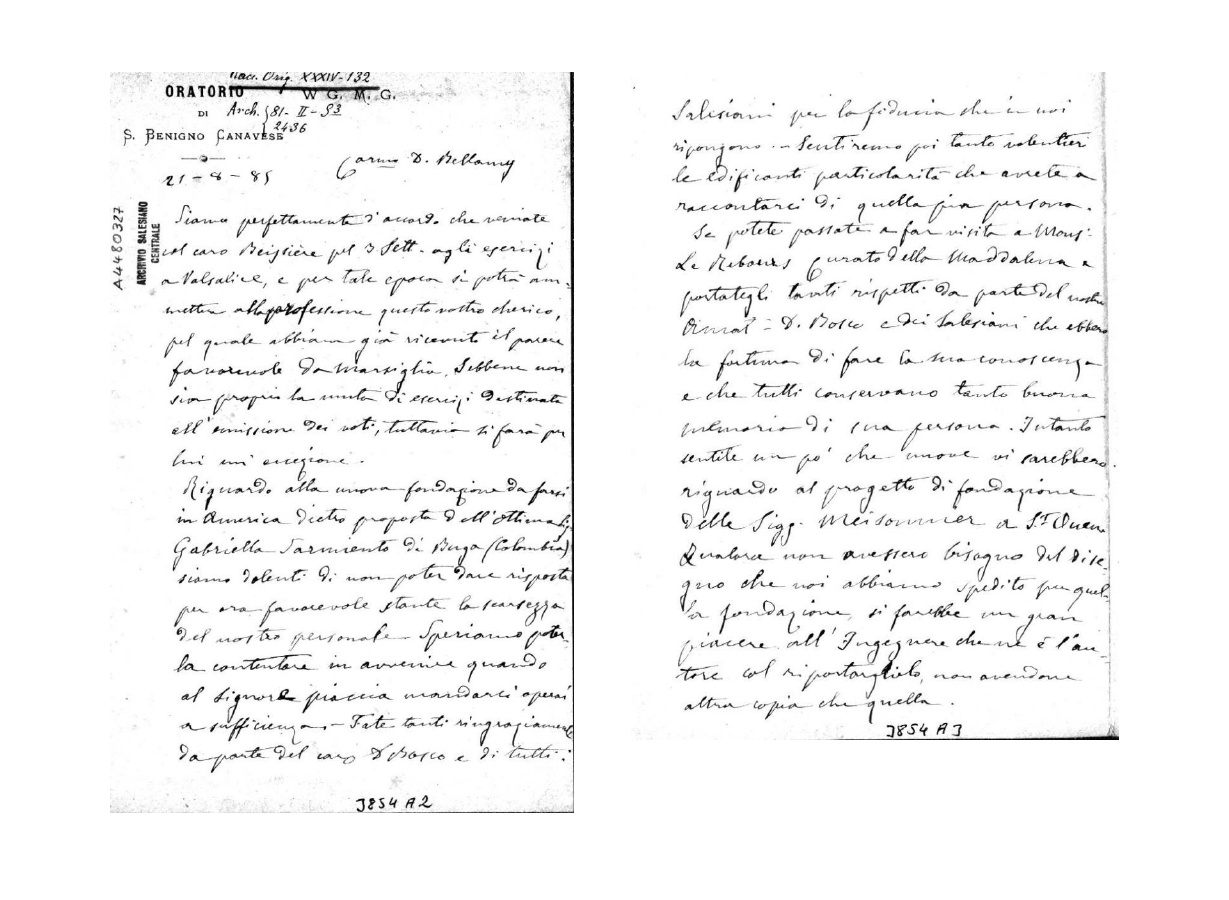 Racc. Orig. XXXIV-132
ORATORIO W G. M. G.
DI Arch. 81-II-93
S. BENIGNO CANAVESE 2436
21-8-85
Carmo D. Bellamy
A4480327
ARCHIVIO SALESIANO
CENTRALE
Siamo perfettamente d'accordo che veniate
col caro Beissière pel 3 Sett. agli esercizi
a Valsalice, e per tale epoca si potrà am-
mettere alla professione questo nostro chierico,
pel quale abbiam già ricevuto il parere
favorevole da Marsiglia. Sebbene non
sia propria la muta di esercizi destinata
all'emissione dei voti, tuttavia si farà per
lui un'eccezione.
Riguardo alla nuova fondazione da farsi
in America dietro proposta dell'ottima Sig.
Gabriella Sarmiento di Buga (Colombia)
siamo dolenti di non poter dare risposta
per ora favorevole stante la scarsezza
del nostro personale. Speriamo poter-
la contentare in avvenire quando
al Signore piaccia mandarci operai
a sufficienza. - Fate tanti ringraziamenti
da parte del caro D. Bosco e di tutti i
J854 A2
Salesiani per la fiducia che in noi
ripongono. - Sentiremo poi tanto volentier
le edificanti particolarità che avrete a
raccontarci di quella pia persona.
Se potete passate a far visita a Mons.
Le Rebours Curato della Maddalena e
portategli tanti rispetti da parte del nostro
Amat. D. Bosco e dei Salesiani che ebbero
la fortuna di fare la sua conoscenza
e che tutti conservano tanto buona
memoria di sua persona. Intanto
sentite un po' che nuove vi sarebbero
riguardo al progetto di fondazione
delle Sigg. Meisonnier a St Ouen
Qualora non avessero bisogno del dise-
gno che noi abbiamo spedito per quel-
la fondazione, si farebbe un gran
piacere all'Ingegnere che ne è l'au-
tore col riportarglielo, non avendone
altra copia che quella.
J854 A3